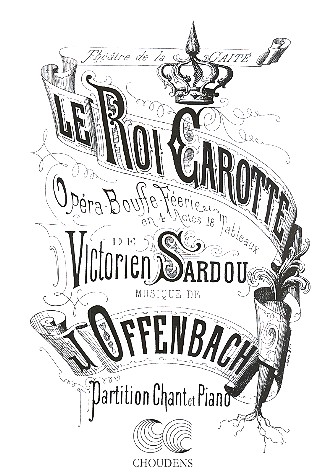 Théâtre de la GAITÉ
LE ROI CAROTTE
Opéra-Bouffe-Féerie
en 4 Actes
Tableaux
DE
Victorien SARDOU
MUSIQUE DE
J. OFFENBACH
Partition Chant et Piano
CHOUDENS